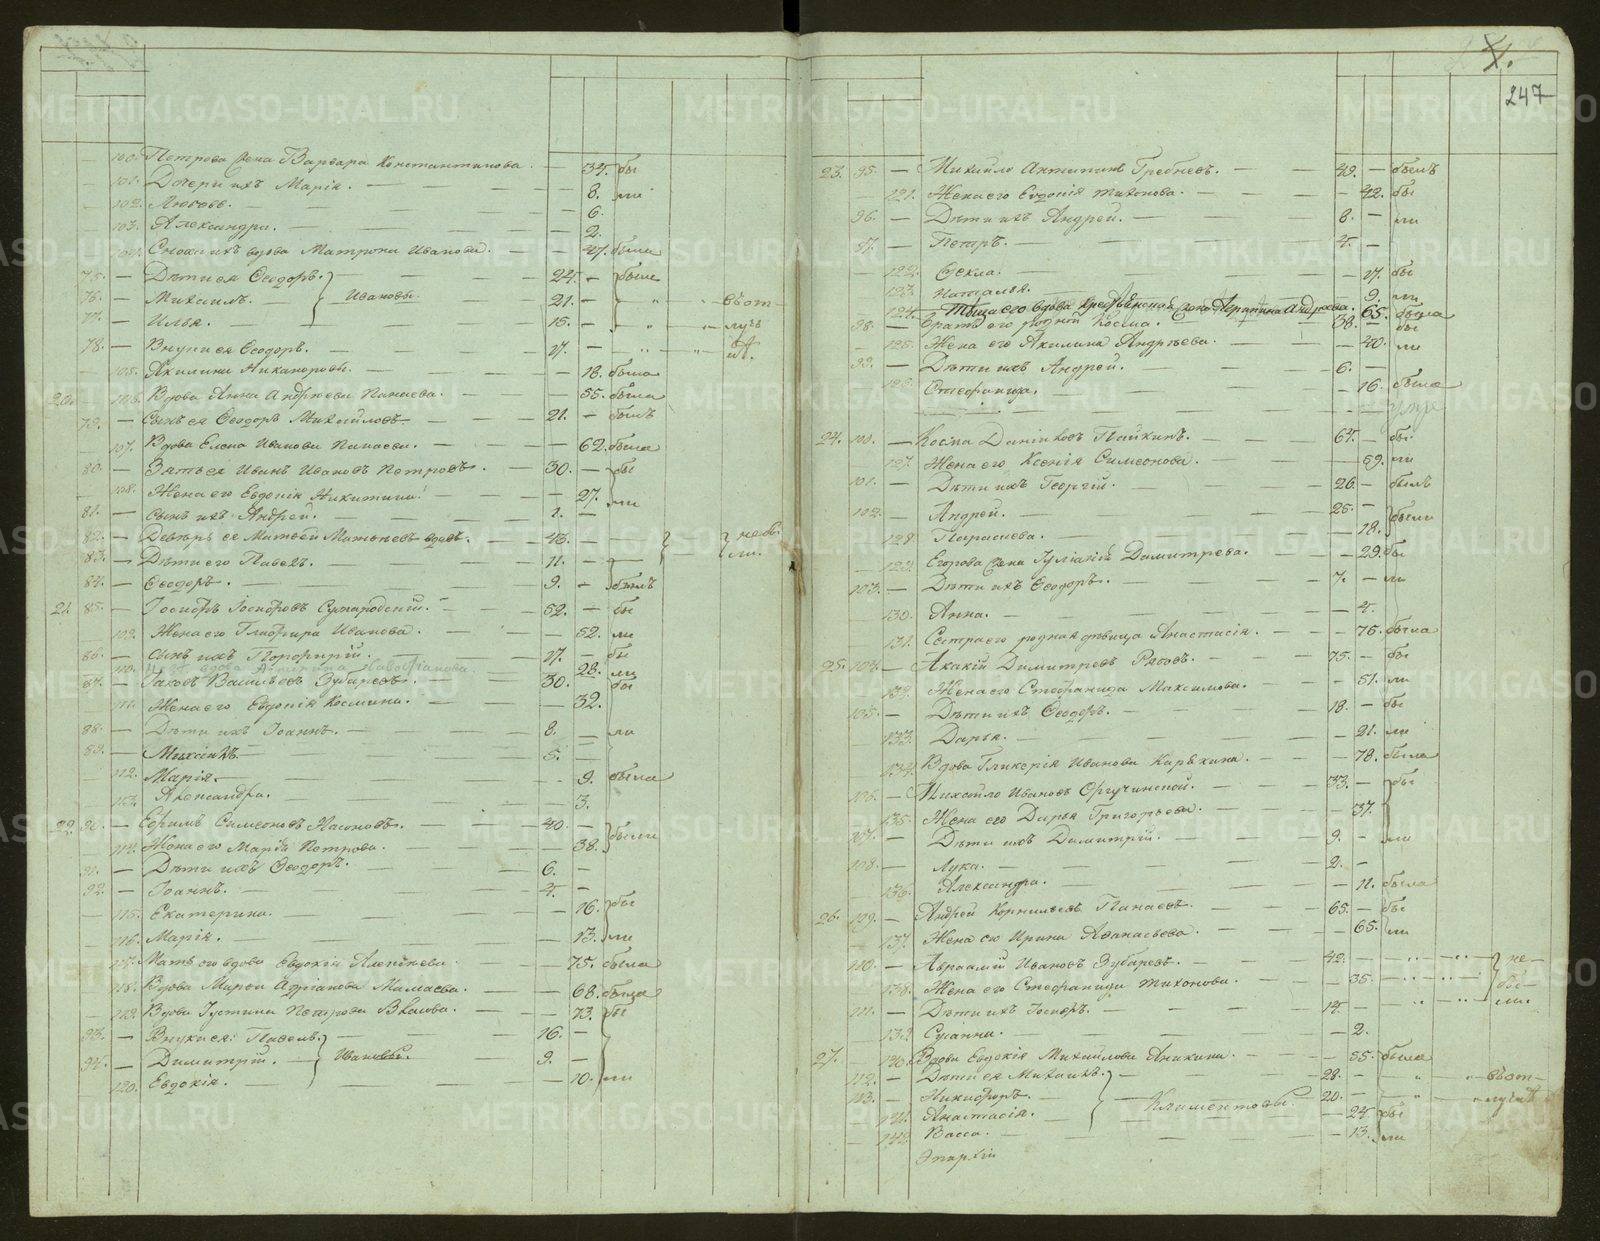 247
100. Петрова жена Варвара Константинова. — 34. бы
101. Дочери ихъ Марія. — 8. ли
102. Любовь. — 6.
103. Александра. — 2.
104. Сноха ихъ вдова Матрона Иванова. — 47. была
75. — Дѣти ея Ѳеодоръ. 24. — были
76. — Михаилъ. Ивановы. 21. — " " въ от-
77. — Илья. 15. — " " лучк
78. — Внукъ ея Ѳеодоръ. — " "
105. Акилина Никанорова. — 18. была
20. 106. Вдова Анна Андреева Панаева. — 55. была
79. — Сынъ ея Ѳеодоръ Михайловъ 21. — былъ
107. Вдова Елена Иванова Панаева. — 62. была
80. — Зять ея Иванъ Ивановъ Петровъ. — 30. — бы
108. Жена его Евдокія Никитина. — 27. ли
81. — Сынъ ихъ Андрей. 1. —
82. — Деверь ея Матвей Матвѣевъ вдовъ. — 43. — не бы-
83. — Дѣти его Павелъ. 11. — ли.
84. — Ѳеодоръ. 9. — былъ
21. 85. — Іосифъ Іосифовъ 52. — бы
109. Жена его Глафира Иванова. — 52. ли
86. — Сынъ ихъ Порфирій. — бы
110. вдова — 28. ли
87. — Іаковъ Васильевъ Зубаревъ. — 30. бы
111. Жена его Евдокія Космина. — 32.
88. — Дѣти ихъ Іоаннъ. 8. — ли
89. — Михаилъ 5. —
112. Марія. — 9. была
113. Александра. — 3.
22. 90. — Ефимъ Симеоновъ Насоновъ. 40. — были
114. Жена его Марія Петрова. — 38.
91. — Дѣти ихъ Ѳеодоръ. 6. —
92. — Іоаннъ. 4. —
115. Екатерина. — 16. бы
116. Марія. — 13. ли
117. Мать его вдова Евдокія Алексѣева — 75. была
118. Вдова Марѳа Адріанова Мамаева. — 68. была
119. Вдова Іустина Петрова Власова. — 73. бы
93. — Внуки ея: Павелъ. 16. —
94. — Димитрій. Ивановы. 9. —
120. Евдокія. — 10. ли
23. 95. — Михайло Антипинъ Гребневъ. 49. — былъ
121. Жена его Евдокія Тихонова. — 42. бы
96. — Дѣти ихъ Андрей. 8. — ли
97. — Петръ. 4. —
122. Ѳекла. — бы
123. Наталья. — 9. ли
124. Теща его вдова крестьянская жена Агрипина Андреева. 65. была
98. — Братъ его родной Косма. 38. — бы
125. Жена его Акилина Андрѣева. — 40. ли
99. — Дѣти ихъ Андрей. 6. —
126. Стефанида. — 16. была
24. 100. — Косма Даніиловъ Пайкинъ. 64. — бы
127. Жена его Ксенія Симеонова. — 59. ли
101. — Дѣти ихъ Георгій. 26. — былъ
102. — Андрей. 25. — были
128. Параскева. — 18.
129. Егорова жена Іуліанія Димитрева. — 29. бы
103. — Дѣти ихъ Ѳеодоръ. 7. — ли
130. Анна. — 4.
131. Сестра его родная дѣвица Анастасія. — 75. была
25. 104. — Акакій Димитревъ Рябовъ. 75. — бы
132. Жена его Стефанида Максимова. — 51. ли
105. — Дѣти ихъ Ѳеодоръ. 18. — бы
133. Дарья. — 21. ли
134. Вдова Гликерія Иванова Карякина. — 78. была
106. — Михайло Ивановъ 33. — бы
135. Жена его Дарья Григорьева. — 37.
107. — Дѣти ихъ Димитрій. 9. — ли
108. — Лука. 2. —
136. Александра. — 11. была
26. 109. — Андрей Корниловъ Панаевъ. 65. — бы
137. Жена его Ирина Аѳанасьева. — 65. ли
110. — Авраамій Ивановъ Зубаревъ. 42. — " " не
138. Жена его Стефанида Тихонова. — 35. — " " бы-
111. — Дѣти ихъ Іосифъ. 14. — " " ли.
139. Сусанна. — 2.
27. 140. Вдова Евдокія Михайлова Аникина. — 55. была
112. — Дѣти ея Михаилъ. 28. — " " въ от-
113. — Никифоръ. Климентовы. 20. — " лучкѣ
141. Анастасія. — 24. бы
142. Васса. — 13. ли
Эпархіи
METRIKI.GASO-URAL.RU